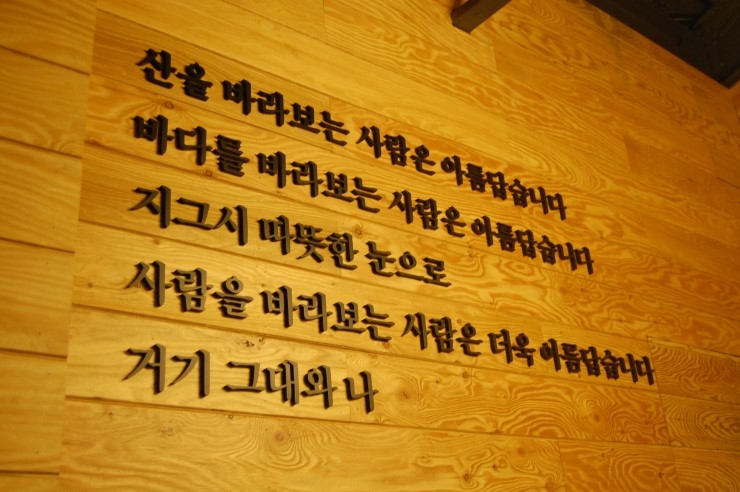 산을 바라보는 사람은 아름답습니다
바다를 바라보는 사람은 아름답습니다
지그시 따뜻한 눈으로
사람을 바라보는 사람은 더욱 아름답습니다
거기 그대와 나